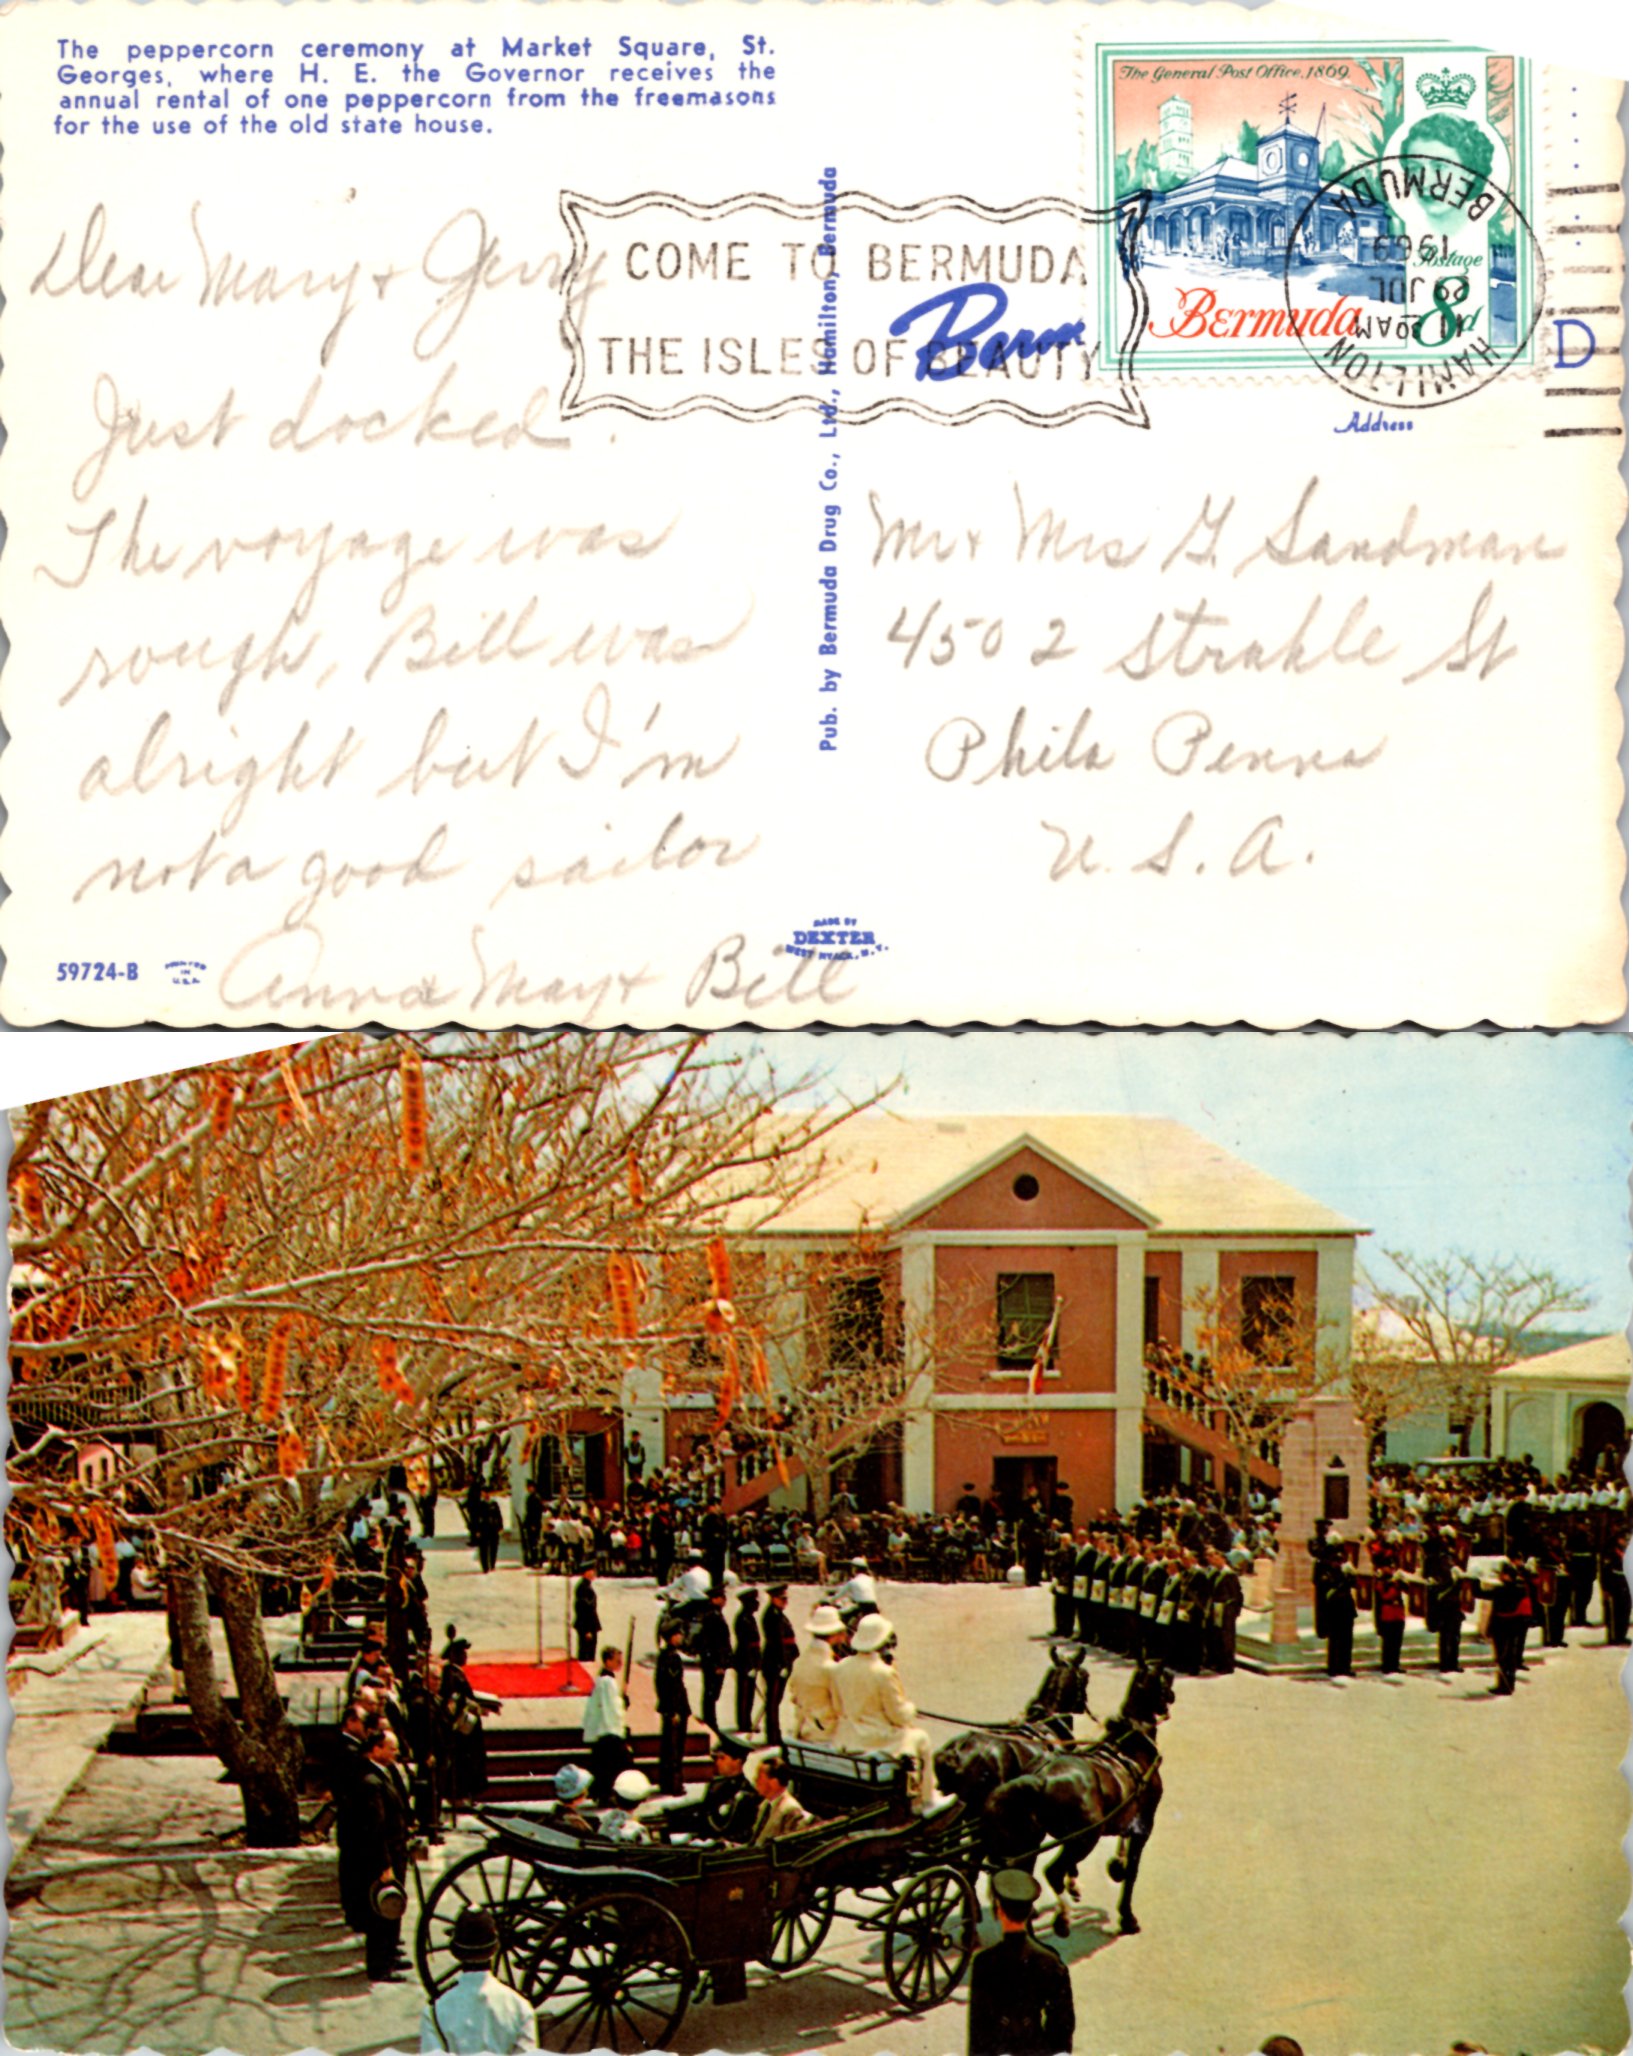 The peppercorn ceremony at Market Square, St.
Georges, where H. E. the Governor receives the
annual rental of one peppercorn from the freemasons
for the use of the old state house.
The General Post Office, 1869.
Postage
Bermuda 8d
HAMILTON
11 30 AM
29 JUL
1969
BERMUDA
COME TO BERMUDA
THE ISLES OF BEAUTY
Berm
D
Address
Dear Mary & Gerry
Just docked.
The voyage was
rough, Bill was
alright but I'm
not a good sailor
Anna May & Bill
Pub. by Bermuda Drug Co., Ltd., Hamilton, Bermuda
Mr & Mrs G. Sandman
4502 Strahle St
Phila Penna
U. S. A.
MADE BY
DEXTER
WEST NYACK, N. Y.
59724-B
PRINTED
IN
U.S.A.